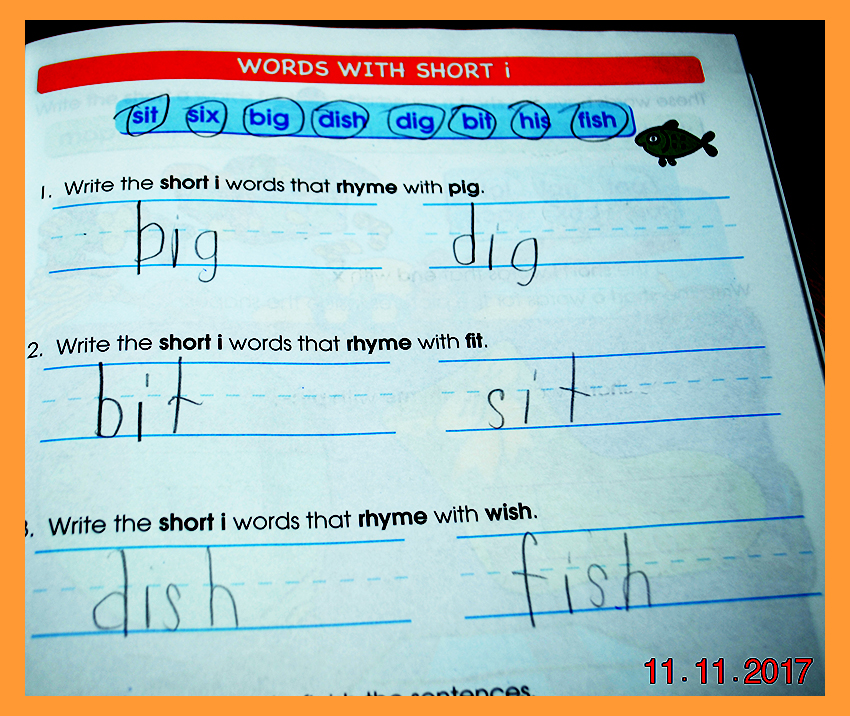 WORDS WITH SHORT i
sit six big dish dig bit his fish
1. Write the short i words that rhyme with pig.
big dig
2. Write the short i words that rhyme with fit.
bit sit
3. Write the short i words that rhyme with wish.
dish fish
the sentences.
11.11.2017